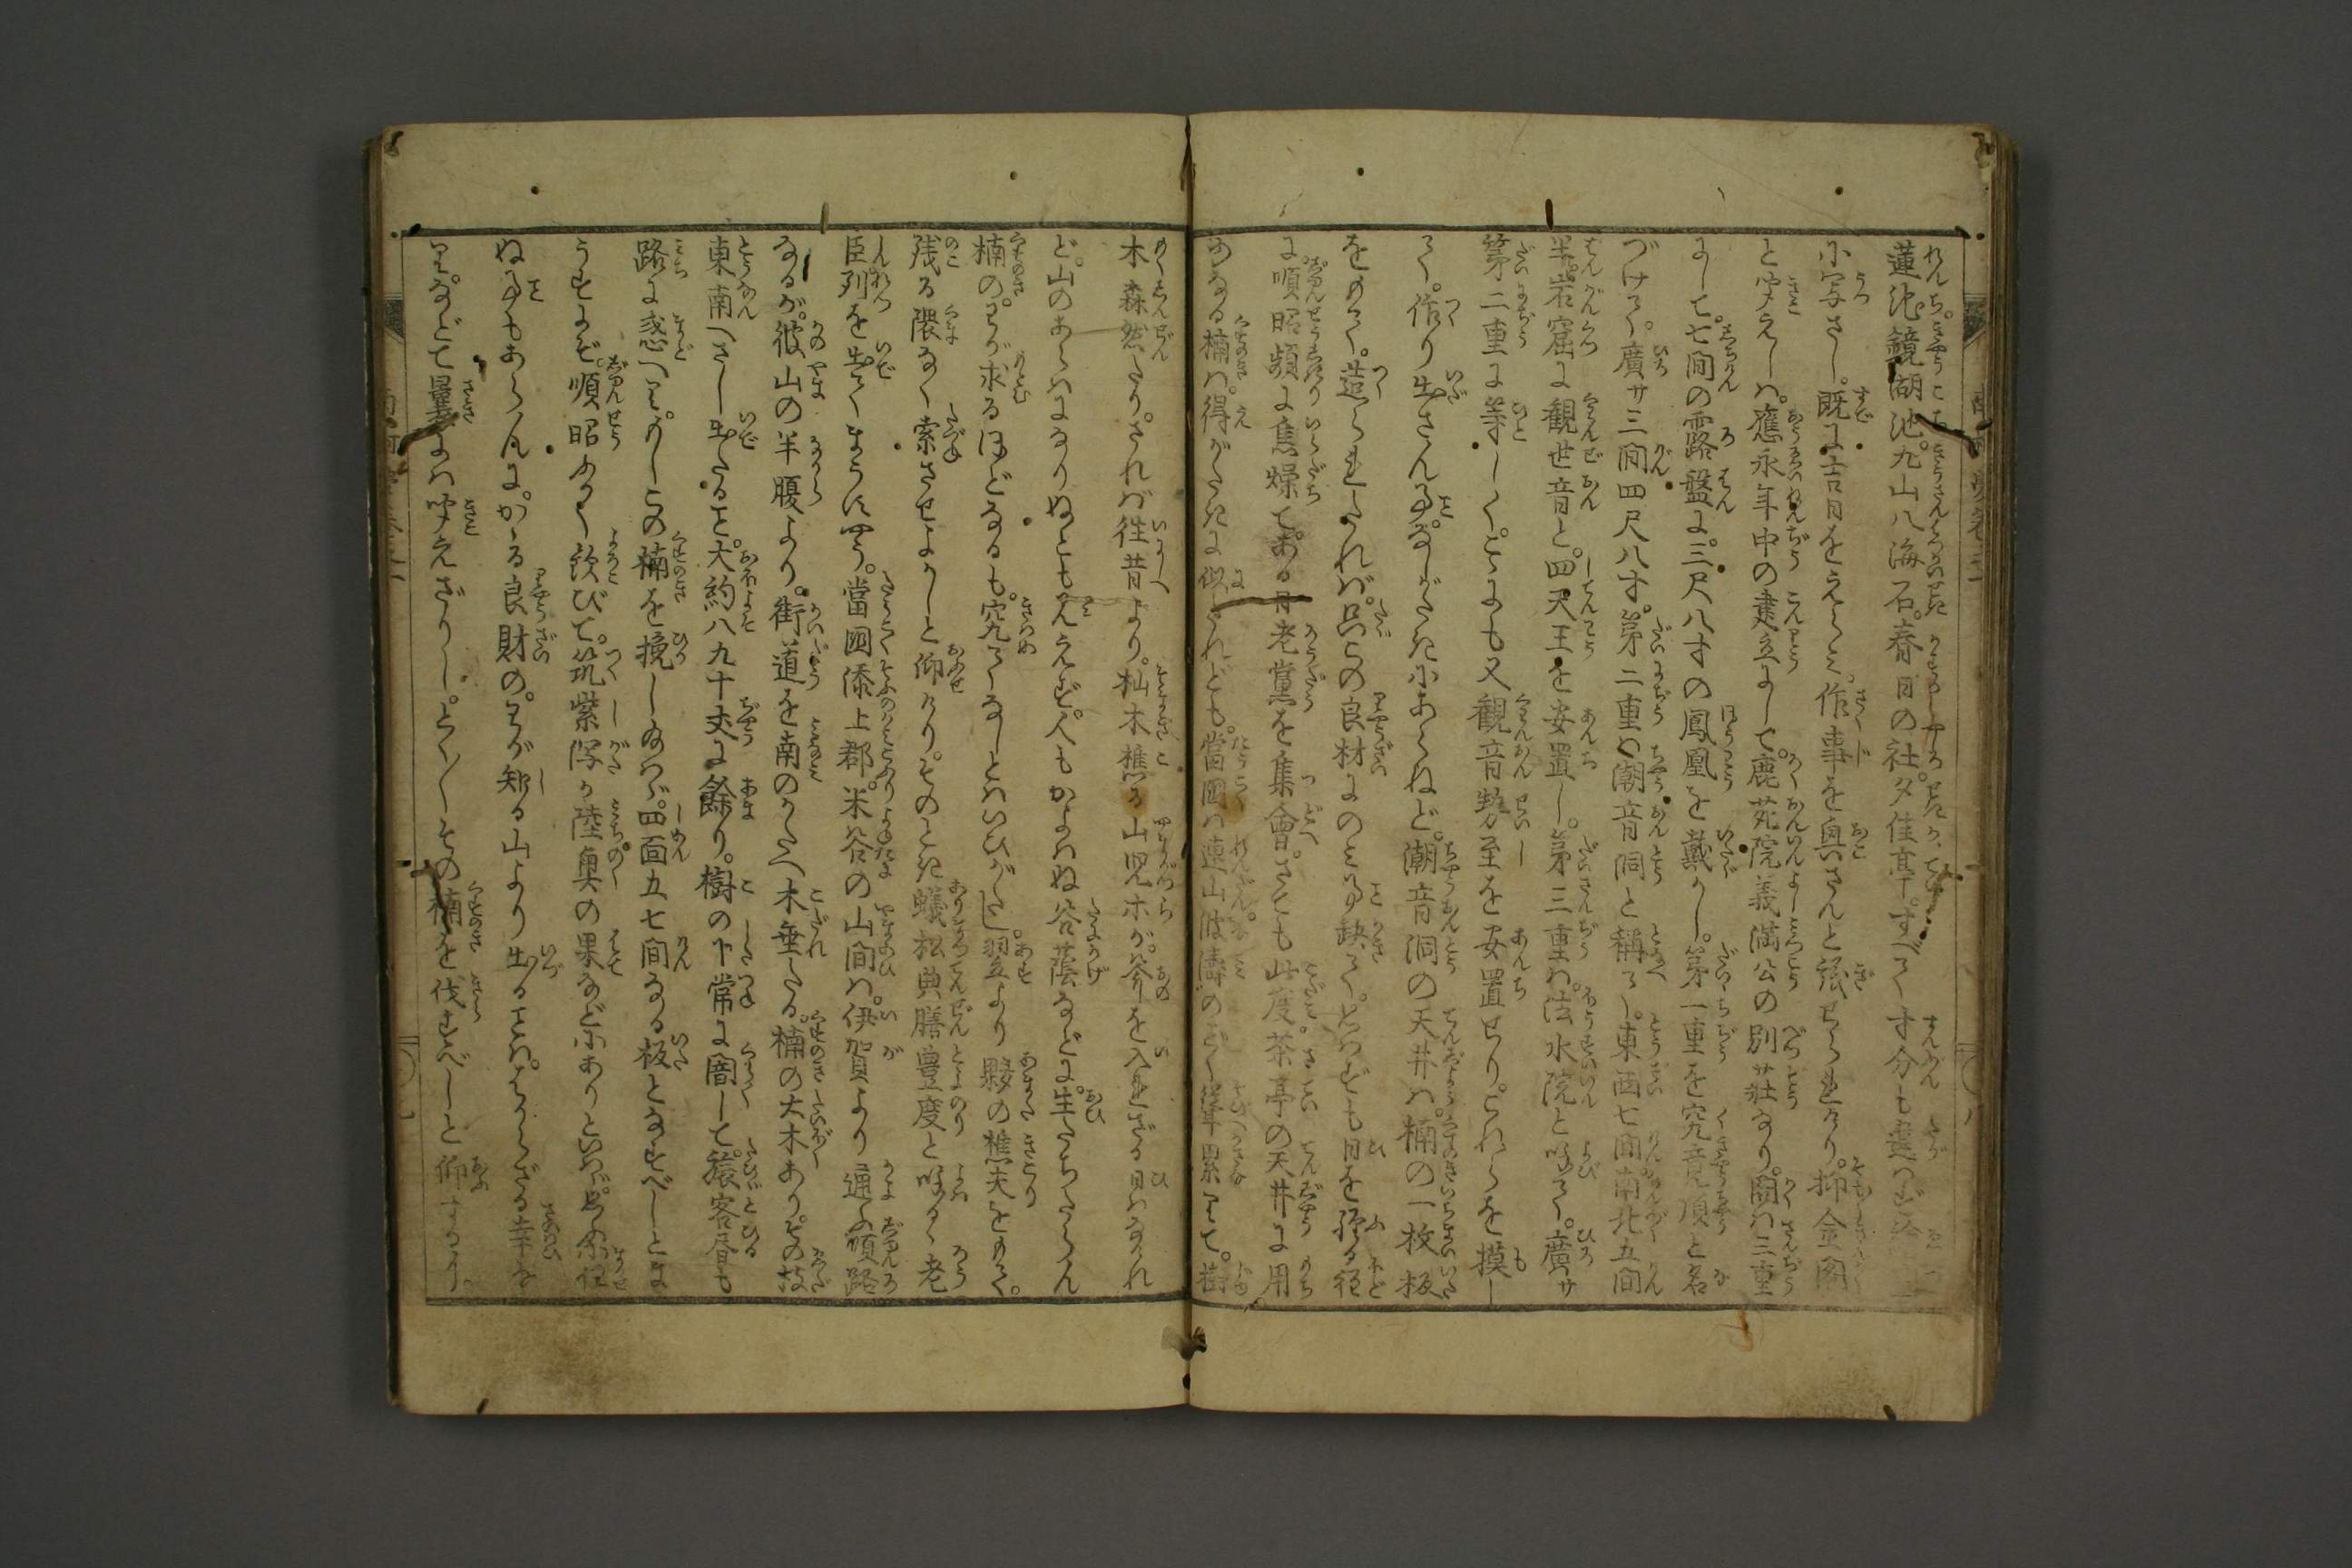 蓮池鏡湖池。九山八海石。春日の社。夕佳亭。すべて寸分も違へず
に写さし。既に吉日をえらみ。作事を興さんと議せられけり。抑金閣
と聞えしは。應永年中の建立にして。鹿苑院義満公の別荘なり。閣は三重
にして。七間の露盤に。三尺八寸の鳳凰を戴かし。第一重を究竟頂と名
づけて。廣サ三間四尺八寸。第二重を潮音洞と稱て。東西七間南北五間
半。岩窟に観世音と。四天王を安置し。第三重は。法水院と喚て。廣サ
第二重に等しく。こゝにも又観音勢至を安置せり。これらを摸し
て。作り出さん事。なしがたきにあらねど。潮音洞の天井は。楠の一枚板
をもて。造られたれば。只この良材にのみ事缺て。とかくすれども日を經る程
に。順昭頻に焦燥て。ある日老黨を集會。さても此度。茶亭の天井に用
ゐる楠は。得がたきに似たれども。當國は連山波濤のごと聳累りて。樹
木森然たり。されば往昔より。杣木樵る山児ホが。斧を入れざる日はなけれ
ど。山のあらはになりぬとも見えず。人もかよはぬ谷蔭などに。生たちたらん
楠の。わが求るほどなるも。究てなしとはいひがたし。翌より夥の樵夫をもて。
残る隈なく索させよかしと仰けり。そのとき蟻松典膳豊度と呼るゝ老
臣列を出てまうすやう。當国添上郡。米谷の山間は。伊賀より通ふ順路
なるが。彼山の半腹より。街道を南のかたへ木垂たる。楠の大木あり。その枝
東南へさし出たること。大約八九十丈に餘り。樹の下常に闇して。旅客昼も
路に惑へり。もしこの楠を挽しめ給はゞ。四面五七間なる板となすべしとま
うすにぞ。順昭ふかく歓びて。筑紫潟か陸奥の果などにありといはゞ。
ぬ事もあらんに。かゝる良財の。わが知る山より出ること は。はからざる幸を
りなどて曩には聞えざりし。とく／＼その楠を伐すべしと仰するり。